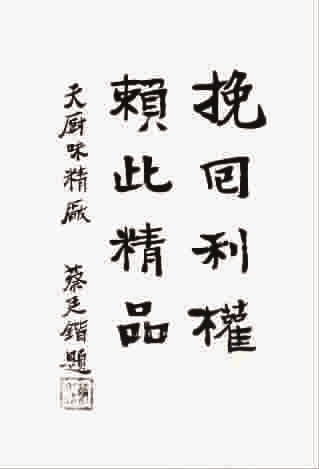 挽回利權
賴此精品
天厨味精廠
蔡廷鍇題